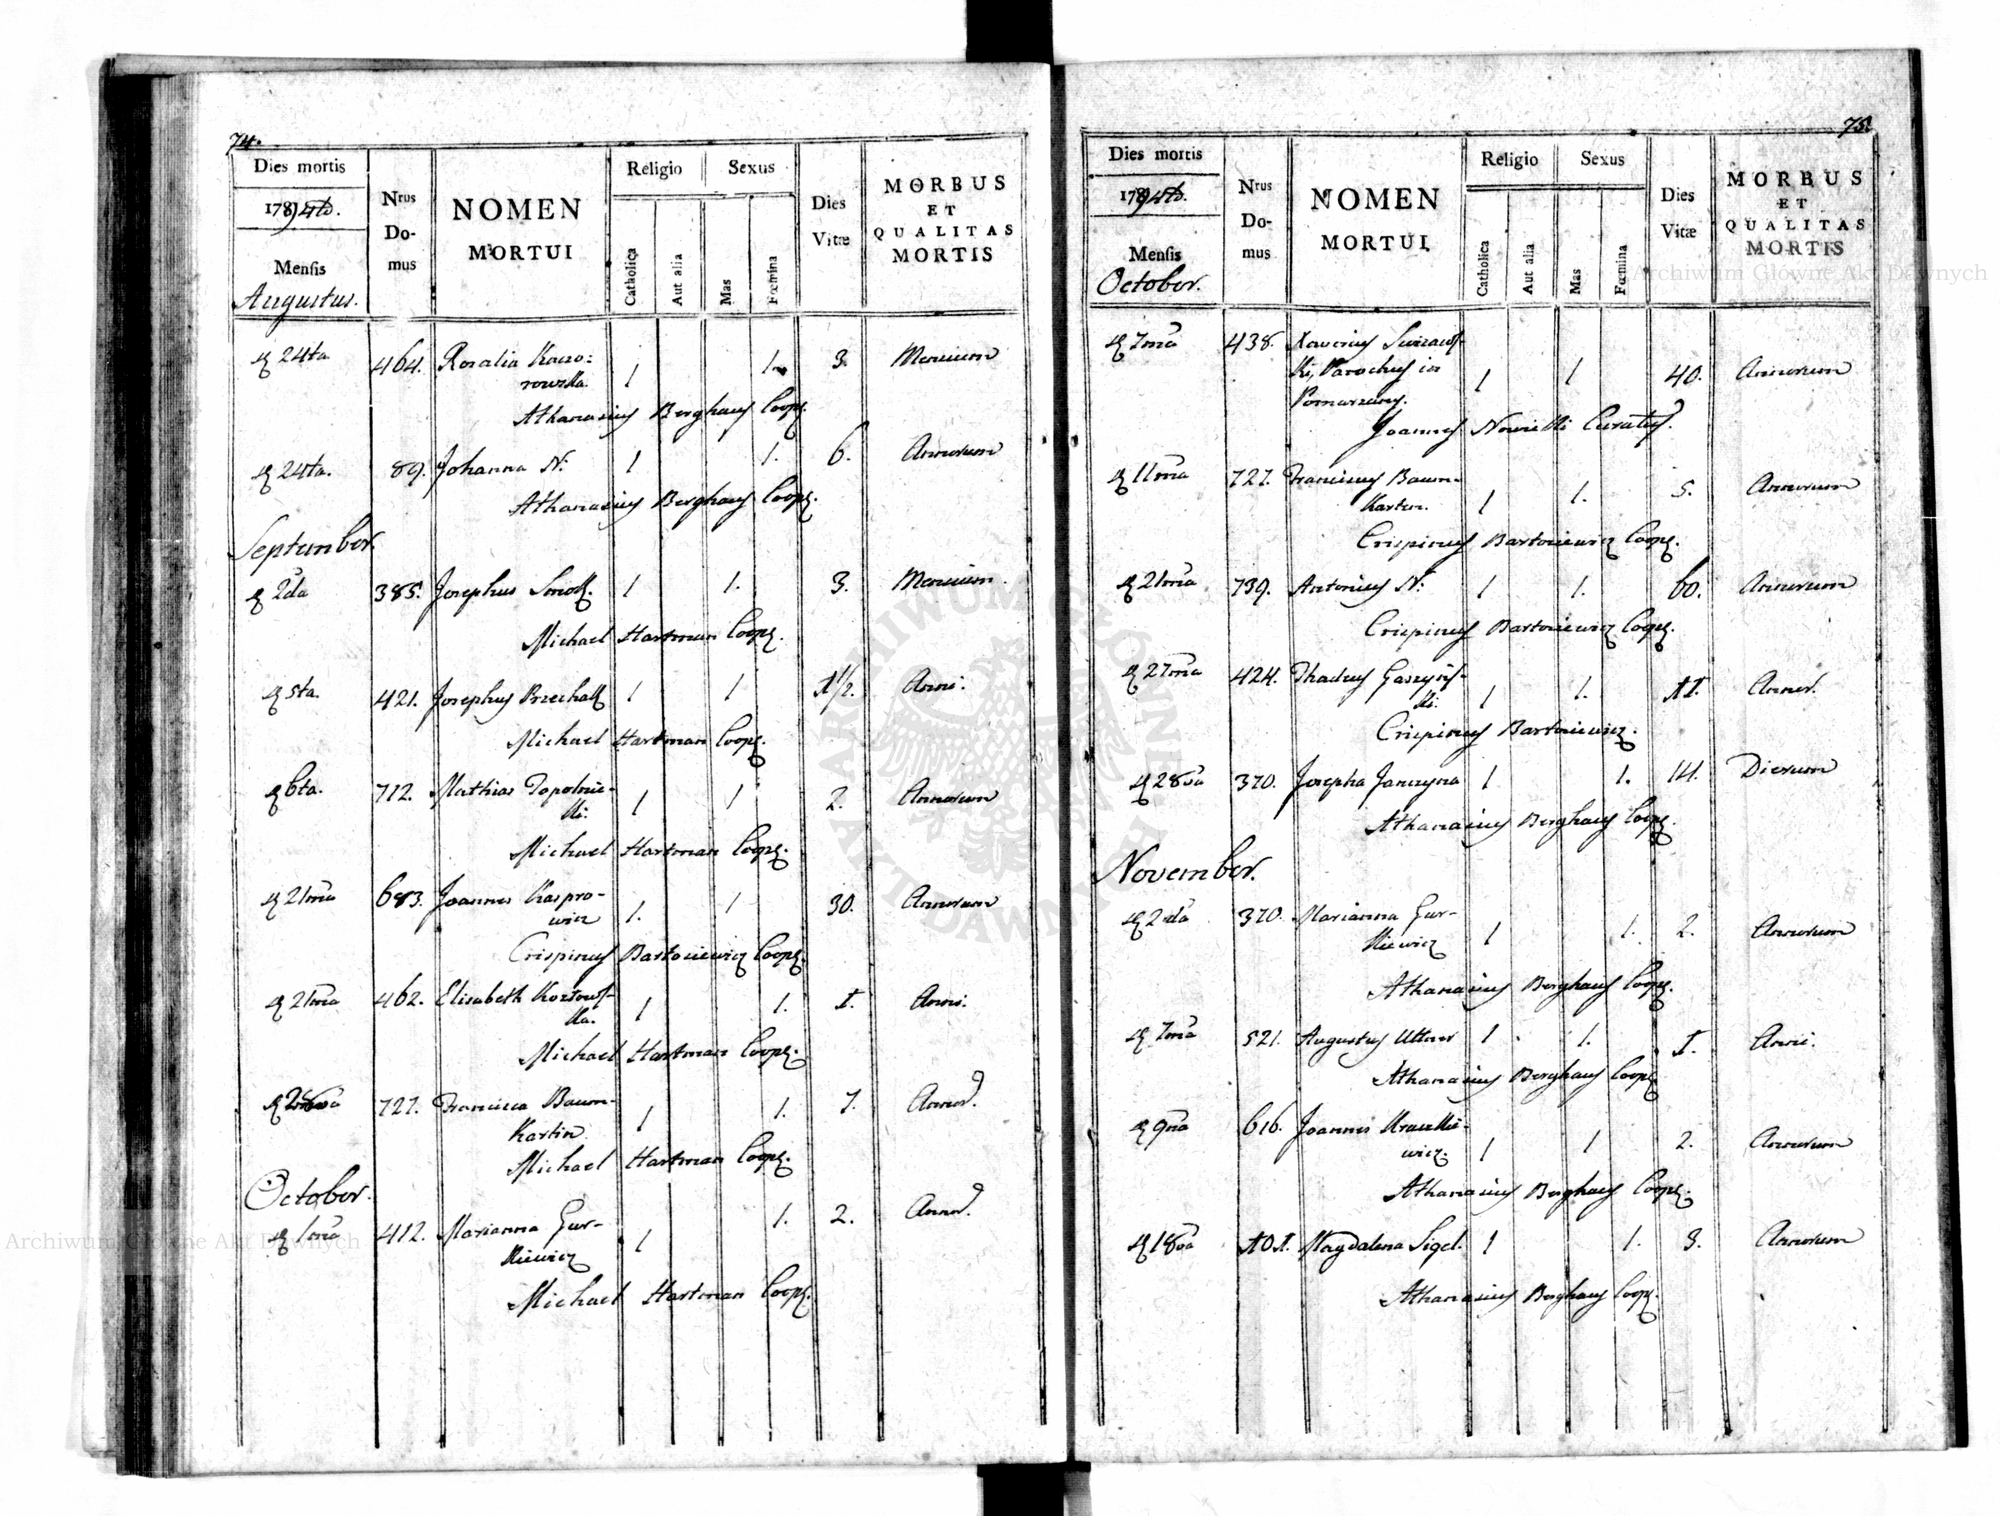 74.
Dies mortis
1794to.
Mensis
Augustus.
Nrus Do-mus
NOMEN MORTUI
Religio
Catholica
Aut alia
Sexus
Mas
Fœmina
Dies Vitæ
MORBUS ET QUALITAS MORTIS
24ta 464. Rosalia 1 1 3. Mensium
Athanasius Berghaus Coop.
24ta. 89. Johanna N. 1 1. 6. Annorum
Athanasius Berghaus Coop.
September.
2da 385. Josephus 1 1. 3. Mensium.
Michael Hartman Coop.
5ta. 421. Josephus 1 1 1 1/2. Anni.
Michael Hartman Coop.
6ta. 712. Mathias Topolnic-
ki. 1 1 2. Annorum
Michael Hartman Coop.
21ma 683. Joannes Kaspro-
wicz 1. 1 30. Annorum
Crispinus Bartoniewicz Coop.
21ma 462. Elisabeth
ka. 1 1. 1. Anni.
Michael Hartman Coop.
727. Francisca Baum-
Kartin 1 1. 7. Annor.
Michael Hartman Coop.
October.
1ma 412. Marianna Gur-
kiewicz 1 1. 2. Annor.
Michael Hartman Coop.
75.
Dies mortis
1794to.
Mensis
October.
Nrus Do-mus
NOMEN MORTUI
Religio
Catholica
Aut alia
Sexus
Mas
Fœmina
Dies Vitæ
MORBUS ET QUALITAS MORTIS
7ma 438. Xaverius
ki, Parochus in 1 1 40. Annorum
Joannes Nowicki Curatus.
11ma 727. Franciscus Baum-
karten. 1 1. 5. Annorum
Crispinus Bartoniewicz Coop.
21ma 739. Antonius N. 1 1. 60. Annorum
Crispinus Bartoniewicz Coop.
27ma 424. Thadeus
ki. 1 1. 11. Annor.
Crispinus Bartoniewicz.
28va 370. Josepha Janczyna 1 1. 14. Dierum
Athanasius Berghaus Coop.
November.
2da 370. Marianna Gur-
kiewicz 1 1. 2. Annorum
Athanasius Berghaus Coop.
7ma 521. Augustus Uttner 1 1. 1. Anni.
Athanasius Berghaus Coop.
9na 616. Joannes
wicz. 1 1 2. Annorum
Athanasius Berghaus Coop.
18va 101. Magdalena Sigel. 1 1. 3. Annorum
Athanasius Berghaus Coop.
Archiwum Główne Akt Dawnych
Archiwum Główne Akt Dawnych
ARCHIWUM GŁÓWNE AKT DAWNYCH